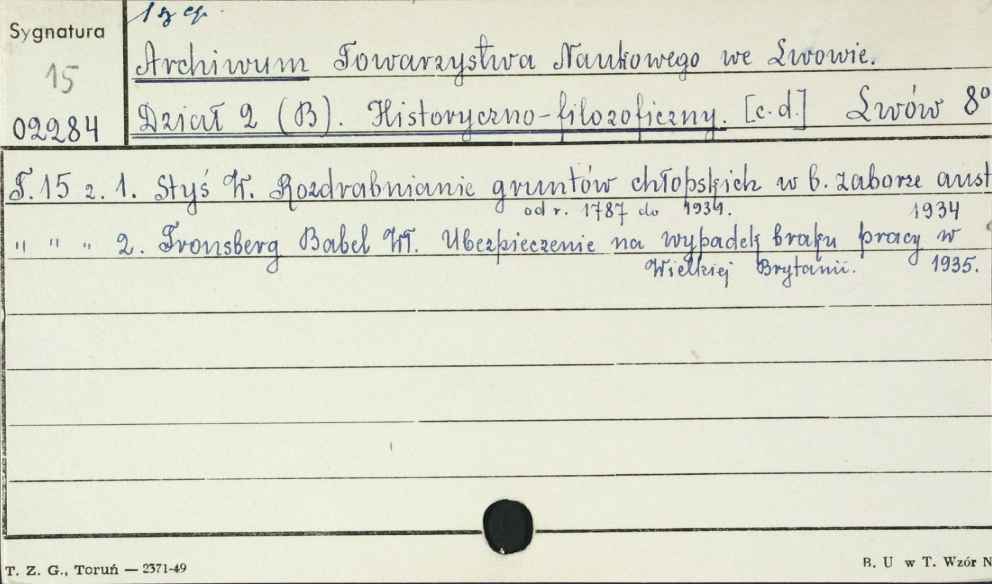 1 sz cz.
Sygnatura
15
02284
Archiwum Towarzystwa Naukowego we Lwowie.
Dział 2 (B). Historyczno-filozoficzny. [c.d.] Lwów 8°
T. 15 z. 1. Styś W. Rozdrabnianie gruntów chłopskich w b. zaborze aust
od r. 1787 do 1931. 1934
" " " 2. Fronsberg Babel Wł. Ubezpieczenie na wypadek braku pracy w
Wielkiej Brytanii. 1935.
T. Z. G., Toruń — 2371-49
B. U w T. Wzór N